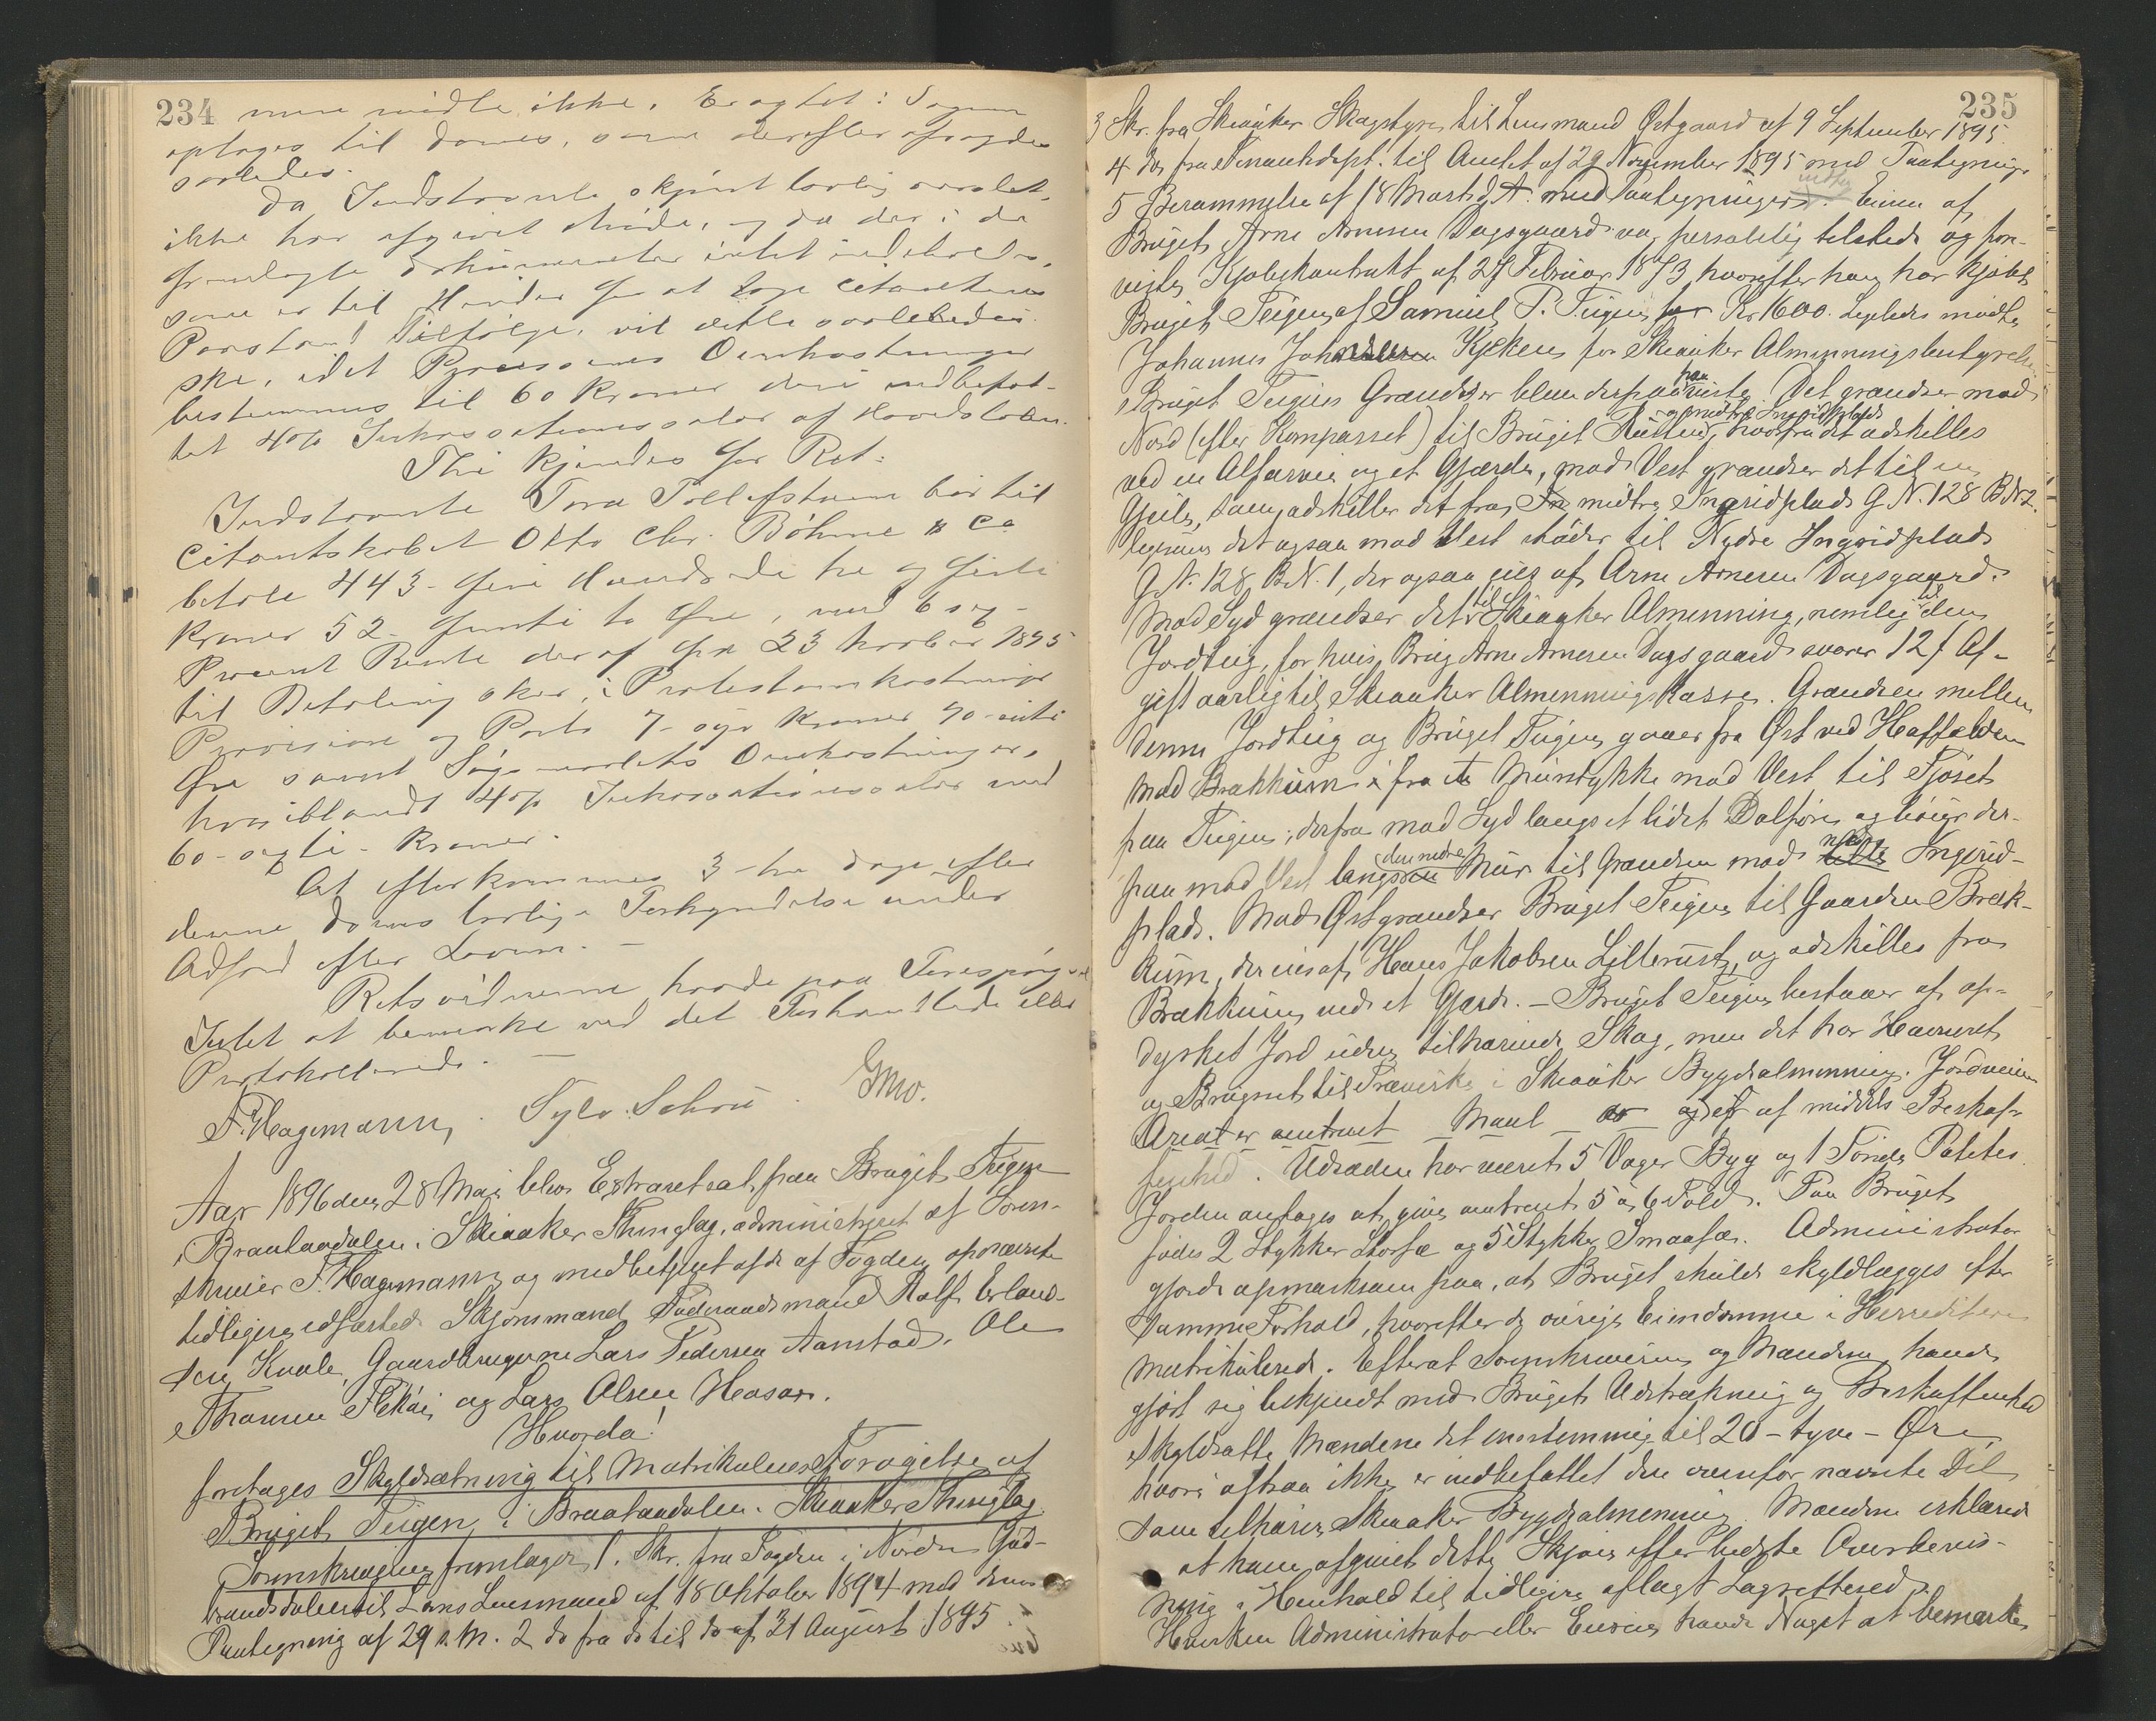 234
mere mødte ikke. Eragtet: Sagen
optages til Doms, som derefter afsagdes
saaledes.
Da Indstevnte skjønt lovlig varslet
ikke har afgivet Møde, og da der i de
fremlagte Dokumenter intet indeholdes,
som er til Hinder for at tage Citantens
Paastand tilfølge, vil dette saaledes
ske, idet Processens Omkostninger
bestemmes til 60 Kroner deri indbefat-
tet 4% Inkassationssalær af Hovedstolen.
Thi kjendes for Ret:
Indstevnte Tora Tollefshaun bør til
Citantskabet Otto Chr. Bøhme & Co
betale 443 - fire Hundrede tre og firti
Kroner 52 - femti to Øre, med 6 sex
Procent Rente deraf fra 23 1895
til Betaling sker, i Protestomkostninger
Provision og Porto 7 - syv Kroner 70 - sytti
Øre samt Søgsmaalets Omkostninger,
hvoriblandt 4% Inkassationssalær med
60 - sexti - Kroner.
At efterkommes 3 - tre Dage efter
denne Doms lovlige Forkyndelse under
Adfærd efter Loven. —
Retsvidnerne havde paa Forespørgsel
Intet at bemærke ved det Forhandlede eller
Protokollerede. —
F. Hagemann. Sylv. Schou.
Aar 1896 den 28 Mai blev Extraret sat paa Bruget Teigen
i Braataadalen i Skiaaker Thinglag, administreret af Soren-
skriver F. Hagemann og medbetjent af de af Fogden opnævnte
tidligere edfæstede Skjønsmænd Føderaadsmand Rolf Erland-
sen Kvale, Gaardbrugerne Lars Pedersen Aamstad, Ole
Thoresen Flekøi og Lars Olsen Haasar.
Hvorda!
foretages Skyldsætning til Matrikulens Forøgelse af
Bruget Teigen i Braataadalen i Skiaaker Thinglag.
Sorenskriveren fremlagde 1. Skr. fra Fogden i Nordre Gud-
brandsdalen til Loms Lensmand af 18 Oktober 1894 med dennes
Paategning af 29 s. M. 2 do fra do til do af 31 August 1895
235
3 Skr. fra Skiaaker Skogstyre til Lensmand Ørtgaard af 9 September 1895.
4 do fra Finantsdept. til Amtet af 29 November 1895 med Paategninger
5 Berammelse af 18 Marts d. A. med Paategninger. Eieren af
Bruget Arne Arnesen Dagsgaard var personlig tilstede og fore-
viste Kjøbekontrakt af 27 Februar 1873 hvorefter han har kjøbt
Bruget Teigen af Samuel P. Teigen for Kr 1600. Ligeledes mødte
Johannes Johnsen Kjeken for Skiaaker Almenningsbestyrelse.
Bruget Teigens Grændser blev derpaa paavist. Det grændser mod
Nord (efter Kompasset) til Bruget Rusten og midtre Ingridplads, hvorfra det adskilles
ved en Alfarvei og et Gjærde, mod Vest grændser det til en
Geile, som adskiller det fra midtre Ingridplads G. N. 128 B. N. 2.
ligesom det ogsaa mod Vest støder til Nedre Ingridplads
G. N. 128, B. N. 1, der ogsaa eies af Arne Arnesen Dagsgaard.
Mod Syd grændser det til Skiaaker Almenning, nemlig til den
Jordteig, for hvis Brug Arne Arnesen Dagsgaard svarer 12 f Af-
gift aarlig til Skiaaker Almenningskasse. Grændsen mellem
denne Jordteig og Bruget Teigen gaaer fra Øst ved Havfælden
mod Brækkum i fra et Murstykke mod Vest til Fjøset
paa Teigen; derfra mod Syd langs et lidet Dalføre og bøier der-
paa mod Vest langs den nedre Mur til Grændsen mod nedre Ingrid-
plads. Mod Øst grændser Bruget Teigen til Gaarden Bræk-
kum, der eies af Hans Jakobsen Lillerust, og adskilles fra
Brækkum ved et Gjærde. — Bruget Teigen bestaaer af op-
dyrket Jord uden tilhørende Skog, men det har Havneret
og Brugsret til Trævirke i Skiaaker Bygdealmenning. Jordveiens
Areal er omtrent Maal og er af middels Beskaf-
fenhed. Udsæden har været 5 Vager Byg og 1 Tønde Poteter.
Jorden antages at give omtrent 5 à 6 Fold. Paa Bruget
fødes 2 Stykker Storfæ og 5 Stykker Smaafæ. Administrator
gjorde opmærksom paa, at Bruget skulde skyldlægges efter
samme Forhold, hvorefter de øvrige Eiendomme i Herredet ere
matrikulerede. Efterat Sorenskriveren og Mændene havde
gjort sig bekjendt med Brugets Udstrækning og Beskaffenhed
skyldsatte Mændene det enstemmig til 20 - tyve - Øre,
hvori altsaa ikke er indbefattet den ovenfor nævnte Del
som tilhører Skiaaker Bygdealmenning. Mændene erklærede
at have afgivet dette Skjøn efter bedste Overbevis-
ning i Henhold til tidligere aflagt Lagretteseed.
Hverken Administrator eller Eieren havde Noget at bemærke